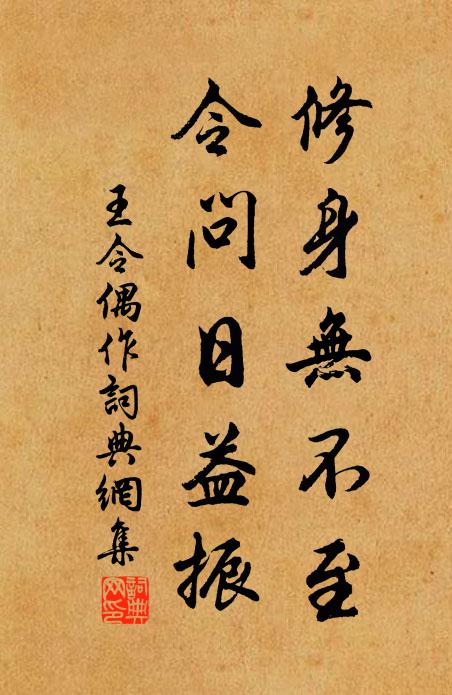 修身無不至
令問日益振
王令偶作詞典網集
詞典網印